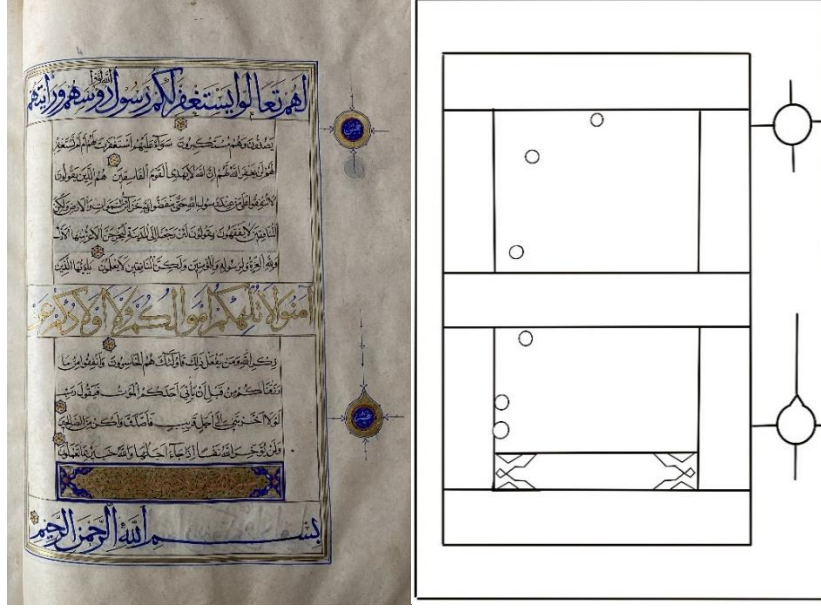 لهم تعالوا يستغفر لكم رسول الله لووا رؤسهم ورايتهم
يصدون وهم مستكبرون سواء عليهم استغفرت لهم ام لم تستغفر
لهم لن يغفر الله لهم ان الله لا يهدى القوم الفاسقين هم الذين يقولون
لا تنفقوا على من عند رسول الله حتى ينفضوا ولله خزائن السموات والارض ولكن
المنافقين لا يفقهون يقولون لئن رجعنا الى المدينة ليخرجن الاعز منها الاذل
ولله العزة ولرسوله وللمؤمنين ولكن المنافقين لا يعلمون يا ايها الذين
امنوا لا تلهكم اموالكم ولا اولادكم عن
ذكر الله ومن يفعل ذلك فاولئك هم الخاسرون وانفقوا من ما
رزقناكم من قبل ان ياتى احدكم الموت فيقول رب
لولا اخرتنى الى اجل قريب فاصدق واكن من الصالحين
ولن يؤخر الله نفسا اذا جاء اجلها والله خبير بما تعملون
بسم الله الرحمن الرحيم